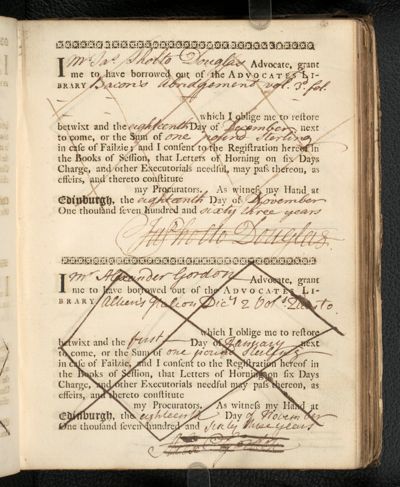 I Mr Jas Sholto Douglas Advocate, grant
me to have borrowed out of the ADVOCATES LI-
BRARY Bacon's Abridgement vol. 3d. fol.
which I oblige me to restore
betwixt and the eighteenth Day of December next
to come, or the Sum of one pound sterling
in case of Failzie; and I consent to the Registration hereof in
the Books of Session, that Letters of Horning on six Days
Charge, and other Executorials needful, may pass thereon, as
effeirs, and thereto constitute
my Procurators. As witness my Hand at
Edinburgh, the eighteenth Day of November
One thousand seven hundred and sixty three years
Jas Sholto Douglas.
I Mr Alexander Gordon Advocate, grant
me to have borrowed out of the ADVOCATES LI-
BRARY 2 Vols Quarto.
which I oblige me to restore
betwixt and the first Day of January next
to come, or the Sum of one pound sterling
in case of Failzie, and I consent to the Registration hereof in
the Books of Session, that Letters of Horning on six Days
Charge, and other Executorials needful may pass thereon, as
effeirs, and thereto constitute
my Procurators. As witness my Hand at
Edinburgh, the eighteenth Day of November
One thousand seven hundred and sixty three years